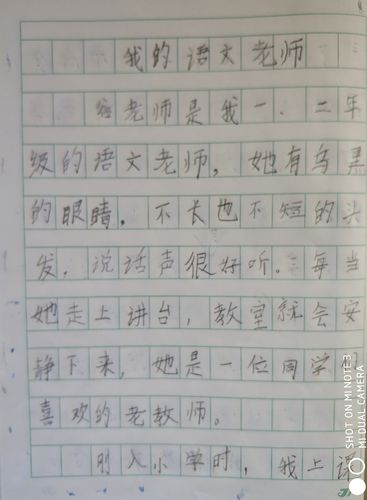 我的语文老师
老师是我一、二年
级的语文老师，她有乌黑
的眼睛，不长也不短的头
发，说话声很好听。每当
她走上讲台，教室就会安
静下来，她是一位同学
喜欢的老教师。
刚入小学时，我上课
SHOT ON MI NOTE 3
MI DUAL CAMERA